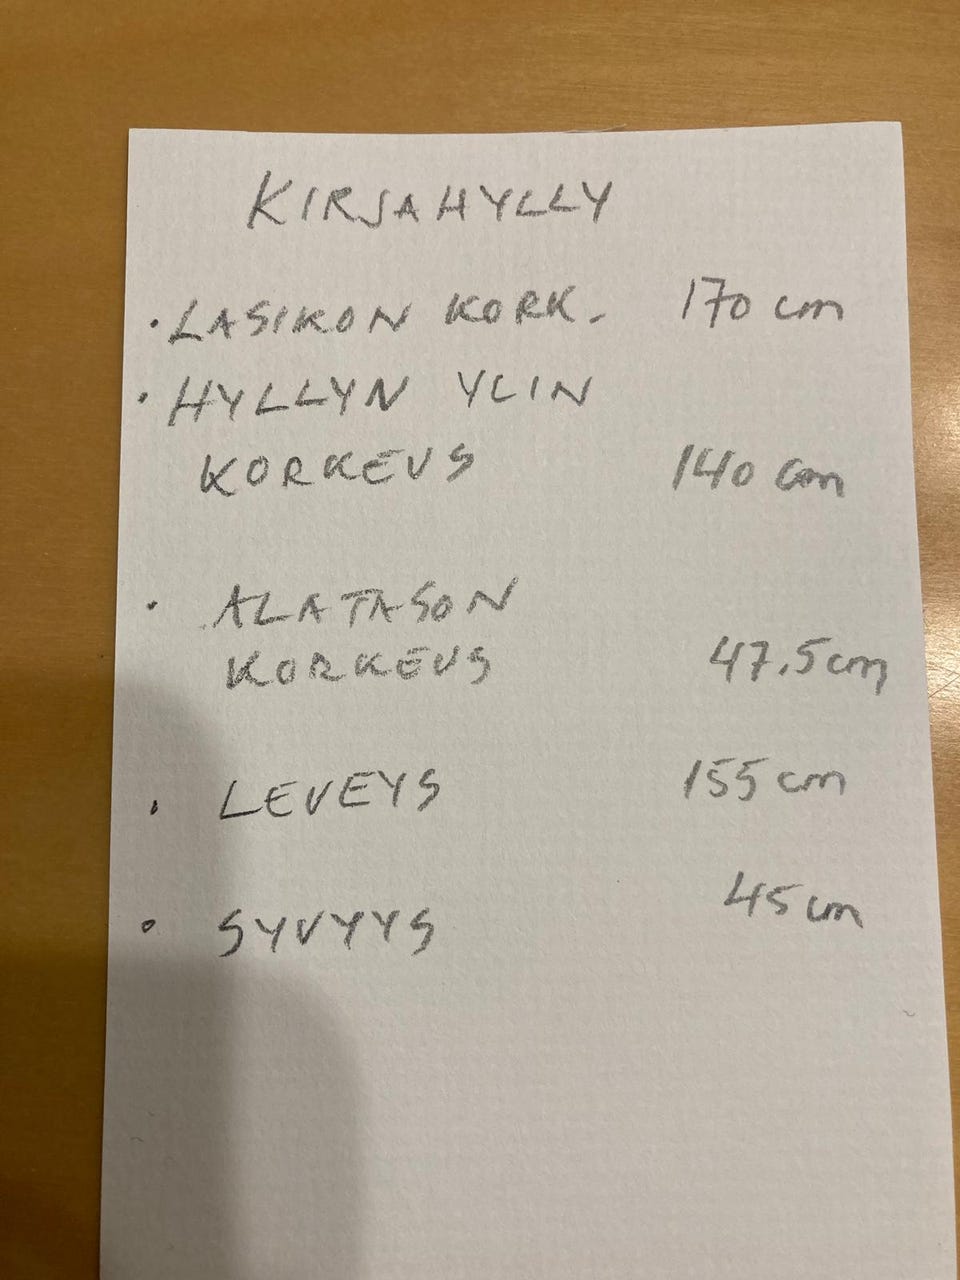 KIRJAHYLLY
• LASIKON KORK. 170 cm
• HYLLYN YLIN
KORKEUS 140 cm
• ALATASON
KORKEUS 47.5cm
• LEVEYS 155 cm
• SYVYYS 45 cm